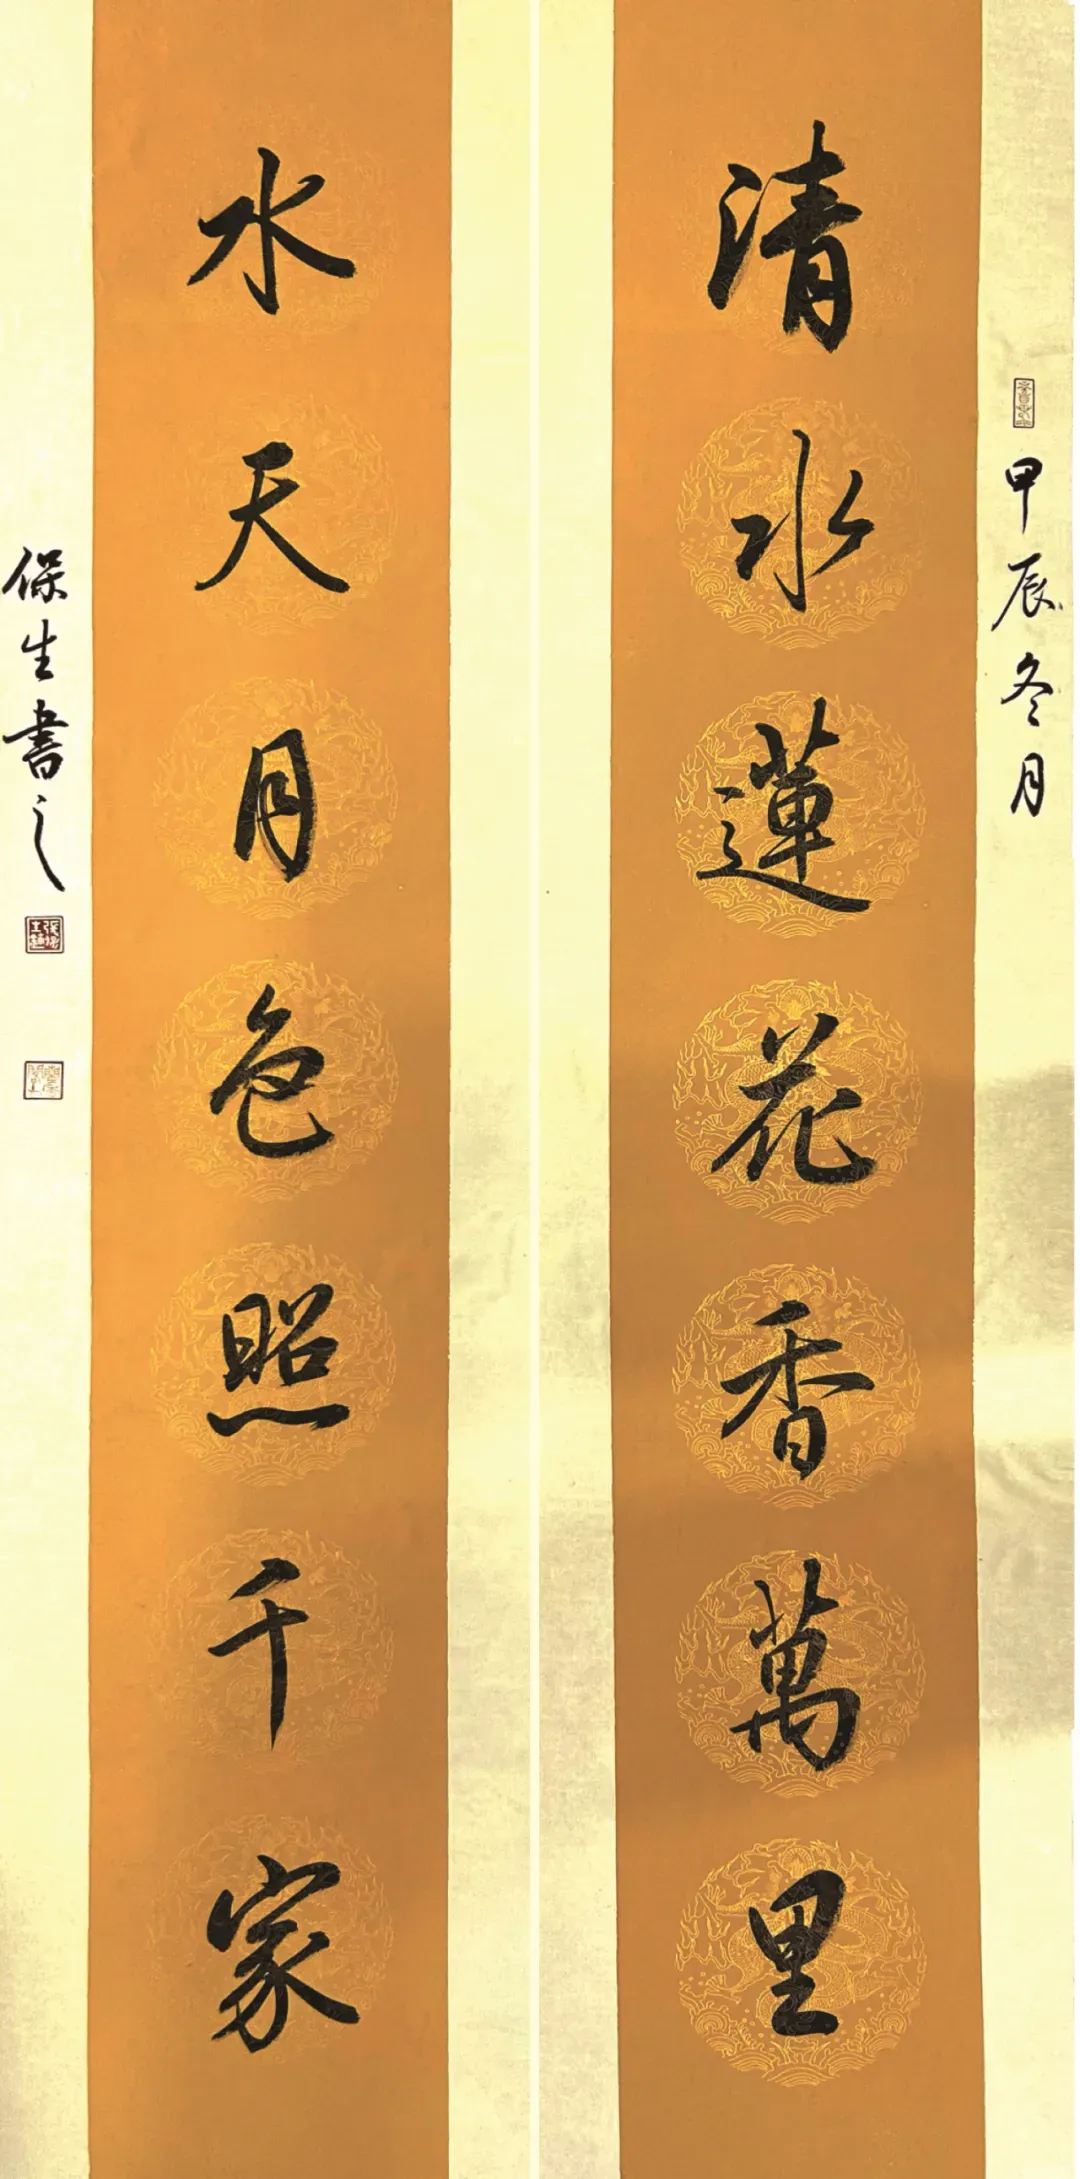 甲辰冬月
清水蓮花香萬里
水天月色照千家
保生書之